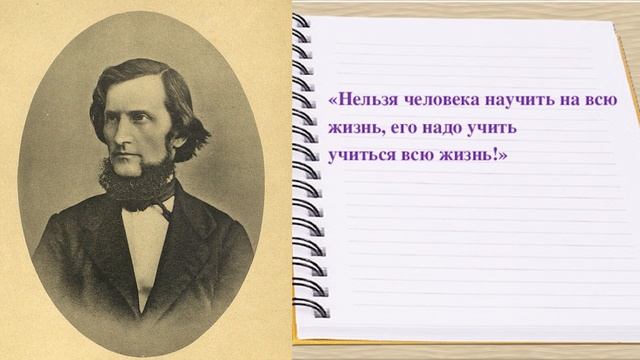 «Нельзя человека научить на всю
жизнь, его надо учить
учиться всю жизнь!»